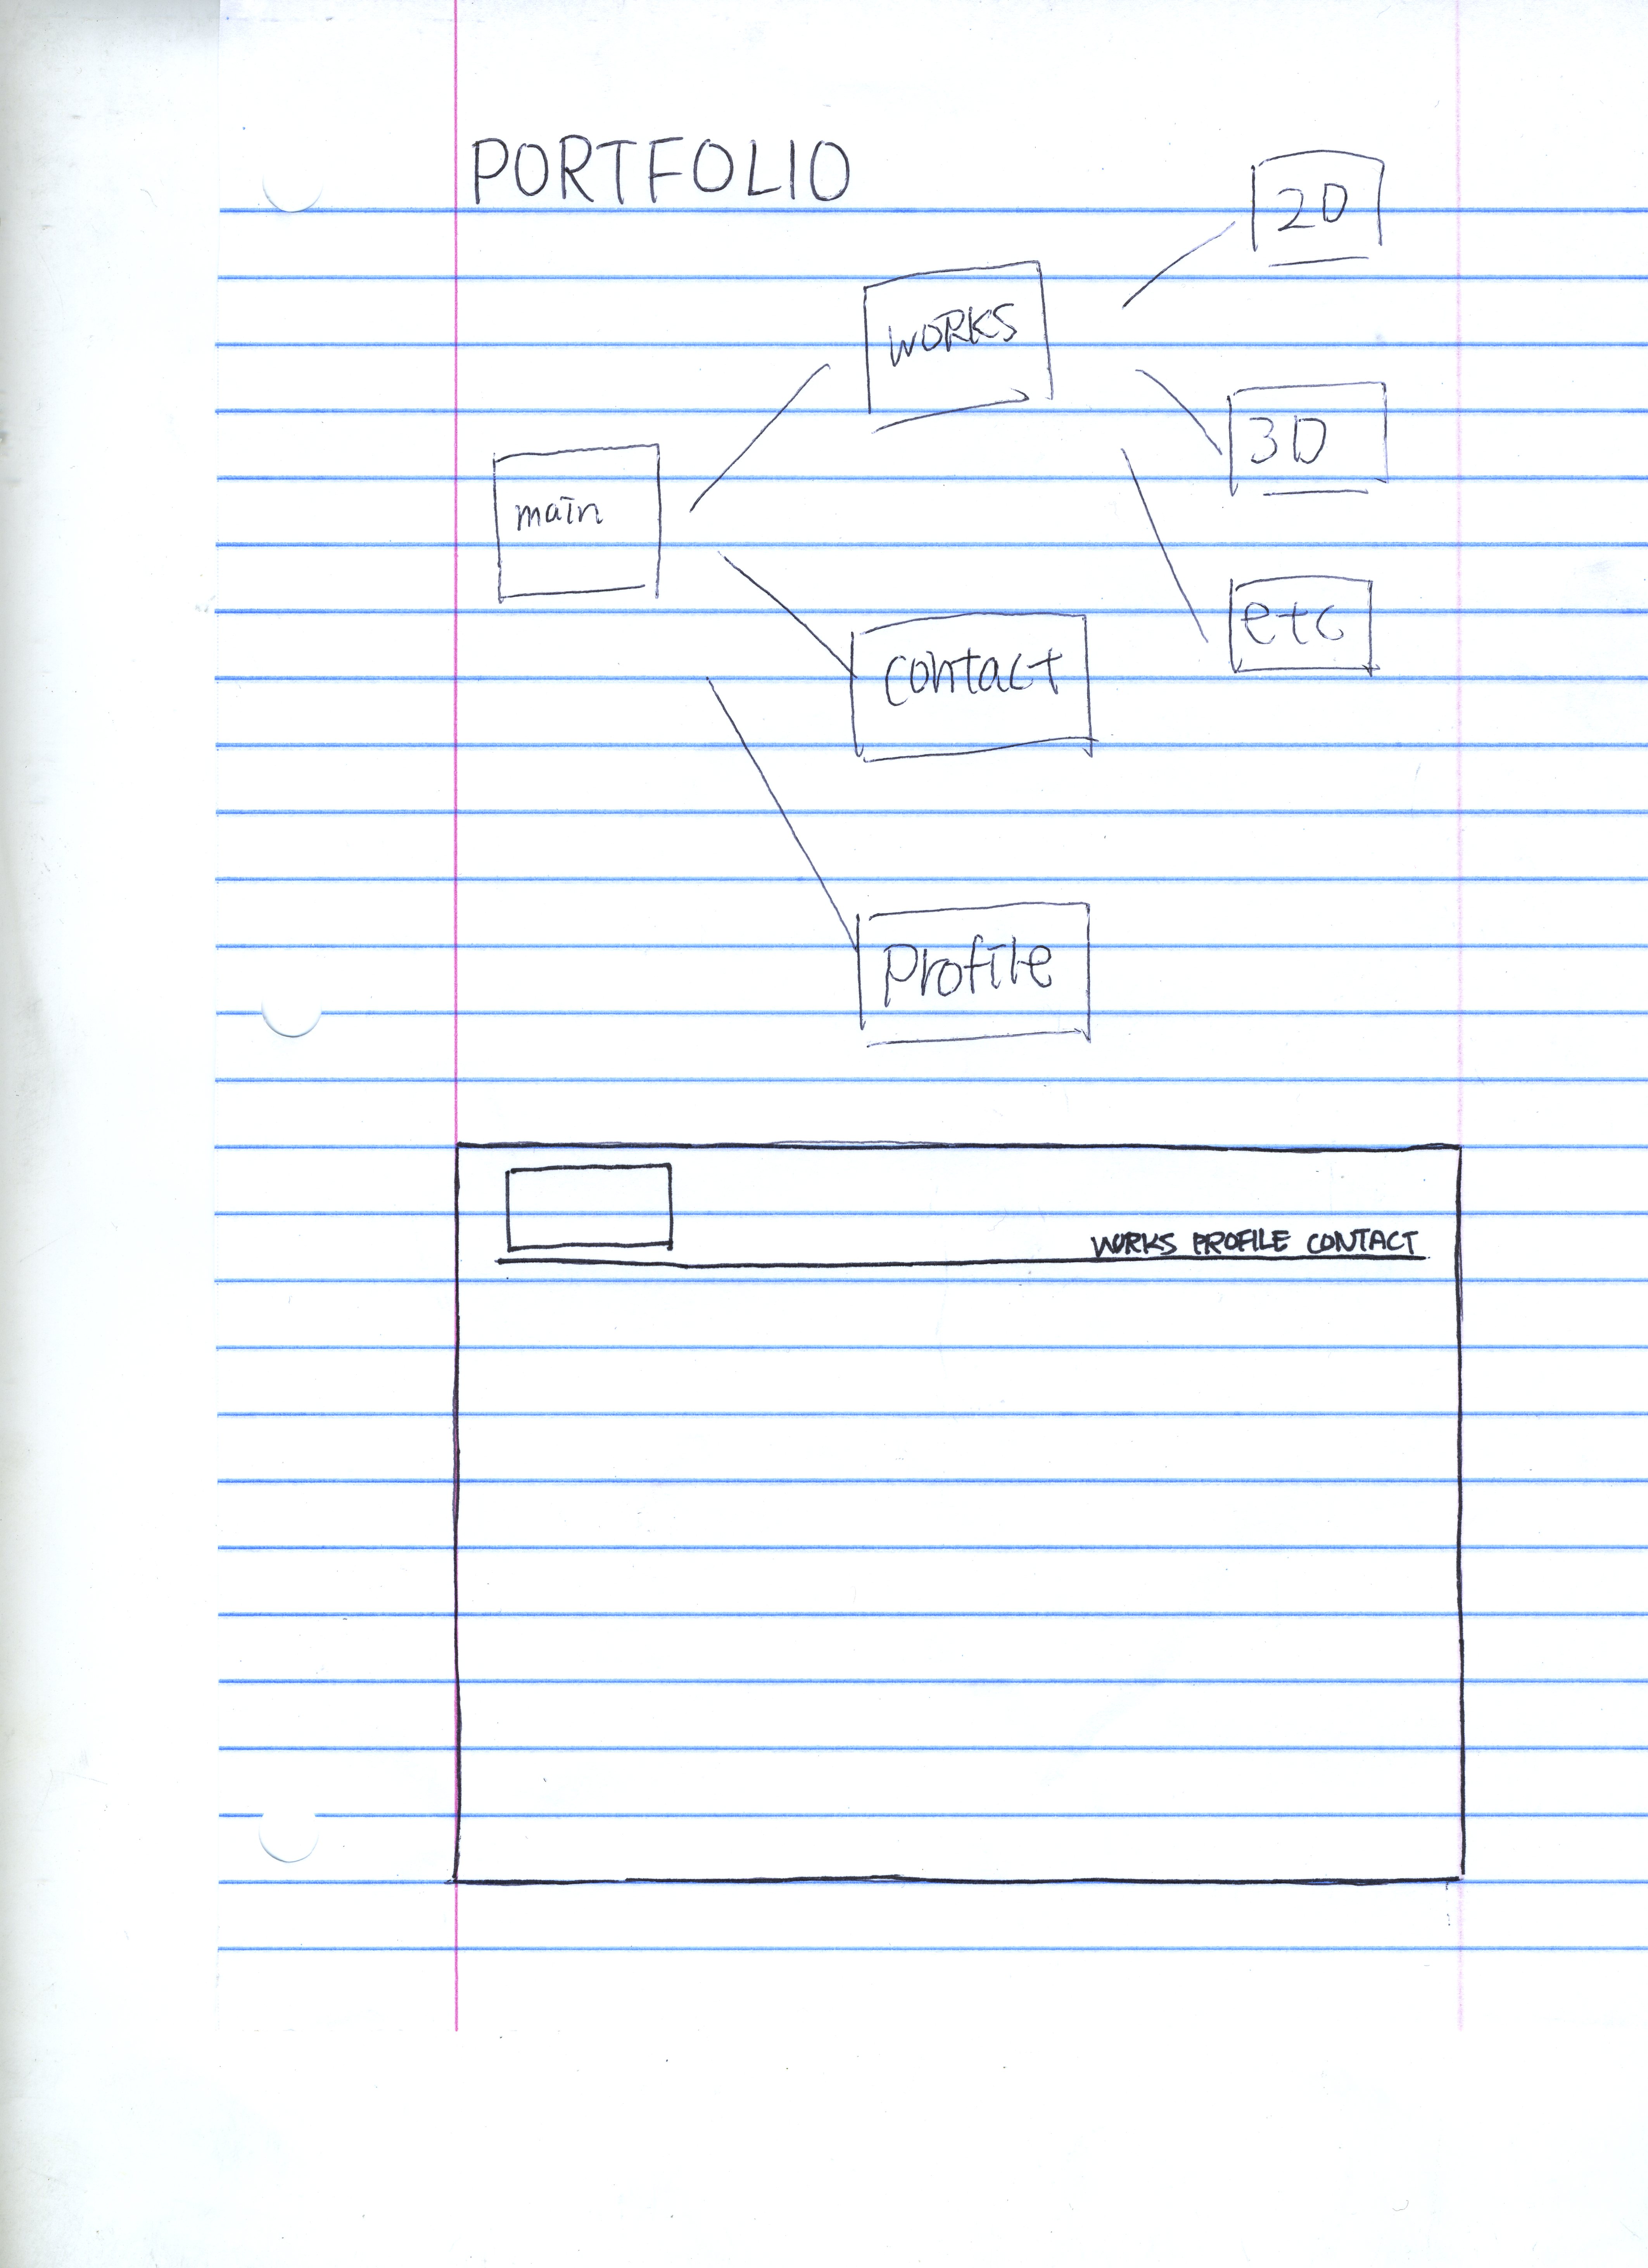 PORTFOLIO
2D
WORKS
3D
main
etc
contact
Profile
WORKS PROFILE CONTACT